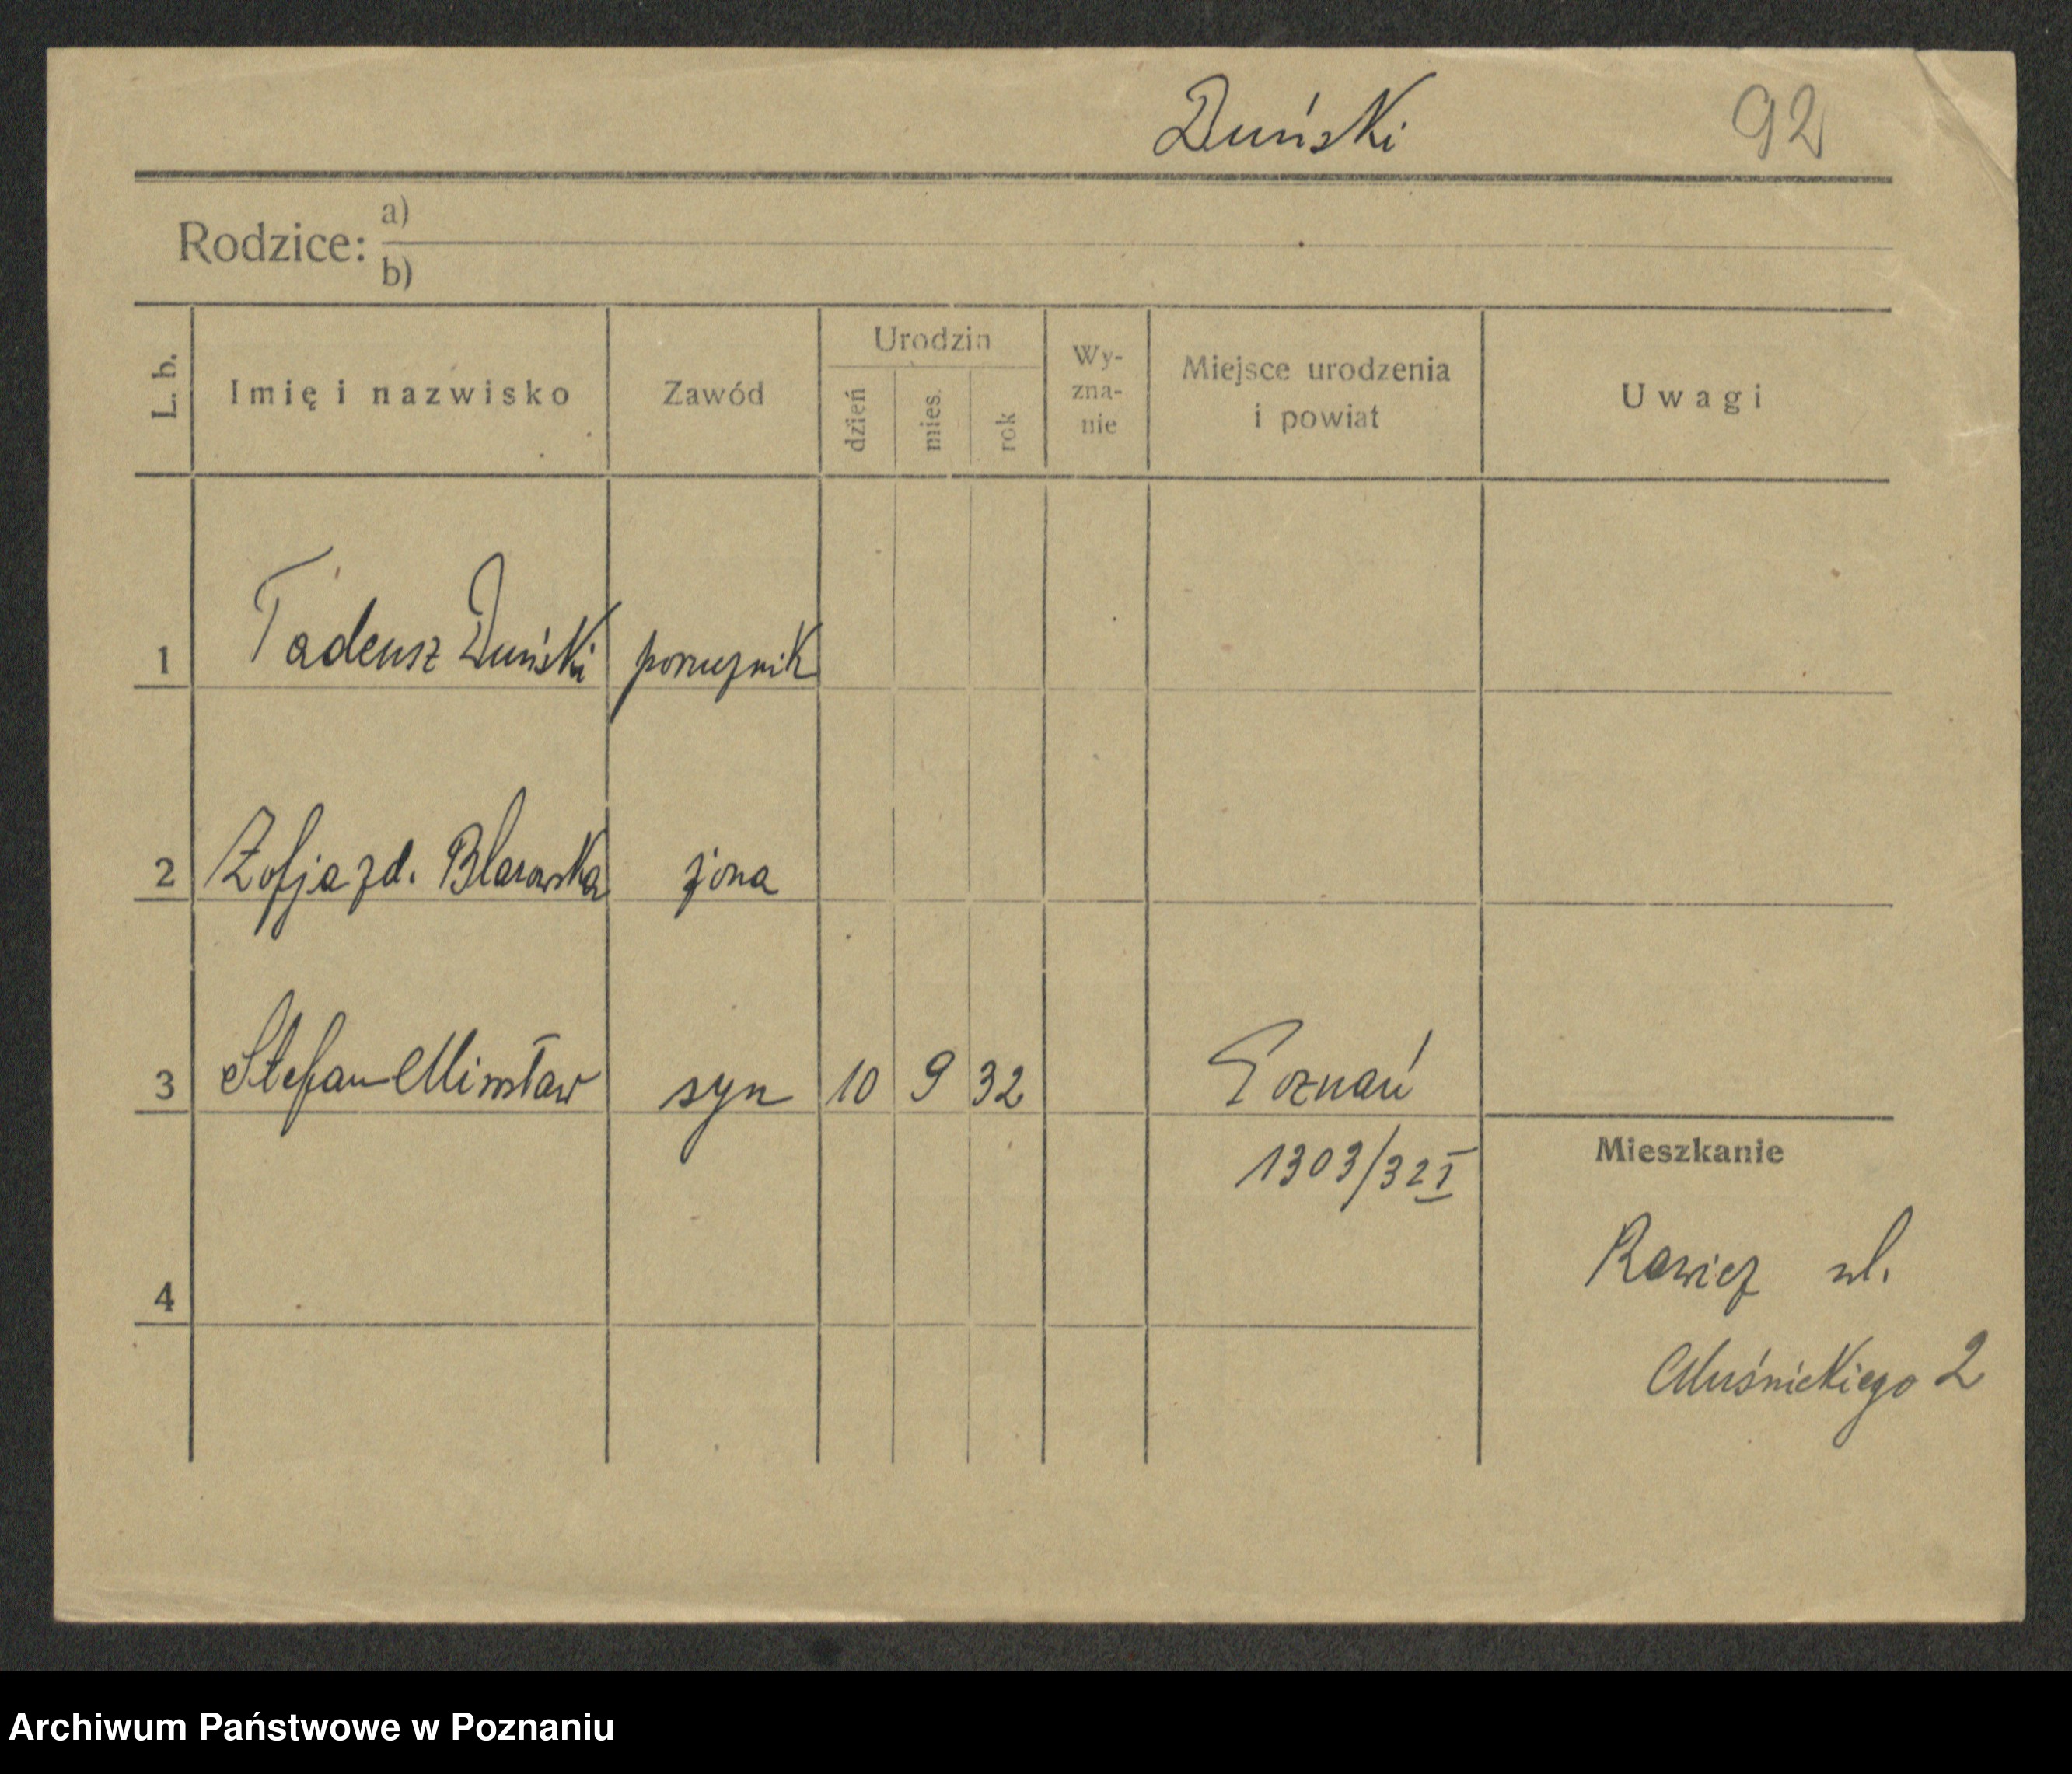 Duński 92
Rodzice: a)
b)
L. b. Imię i nazwisko Zawód Urodzin dzień mies. rok Wy-zna-nie Miejsce urodzenia i powiat Uwagi
1 Tadeusz Duński porucznik
2 Zofja zd. żona
3 Stefan Mirosław syn 10 9 32 Poznań
1303/32 I
Mieszkanie
4 Rawicz ul.
Muśnickiego 2
Archiwum Państwowe w Poznaniu